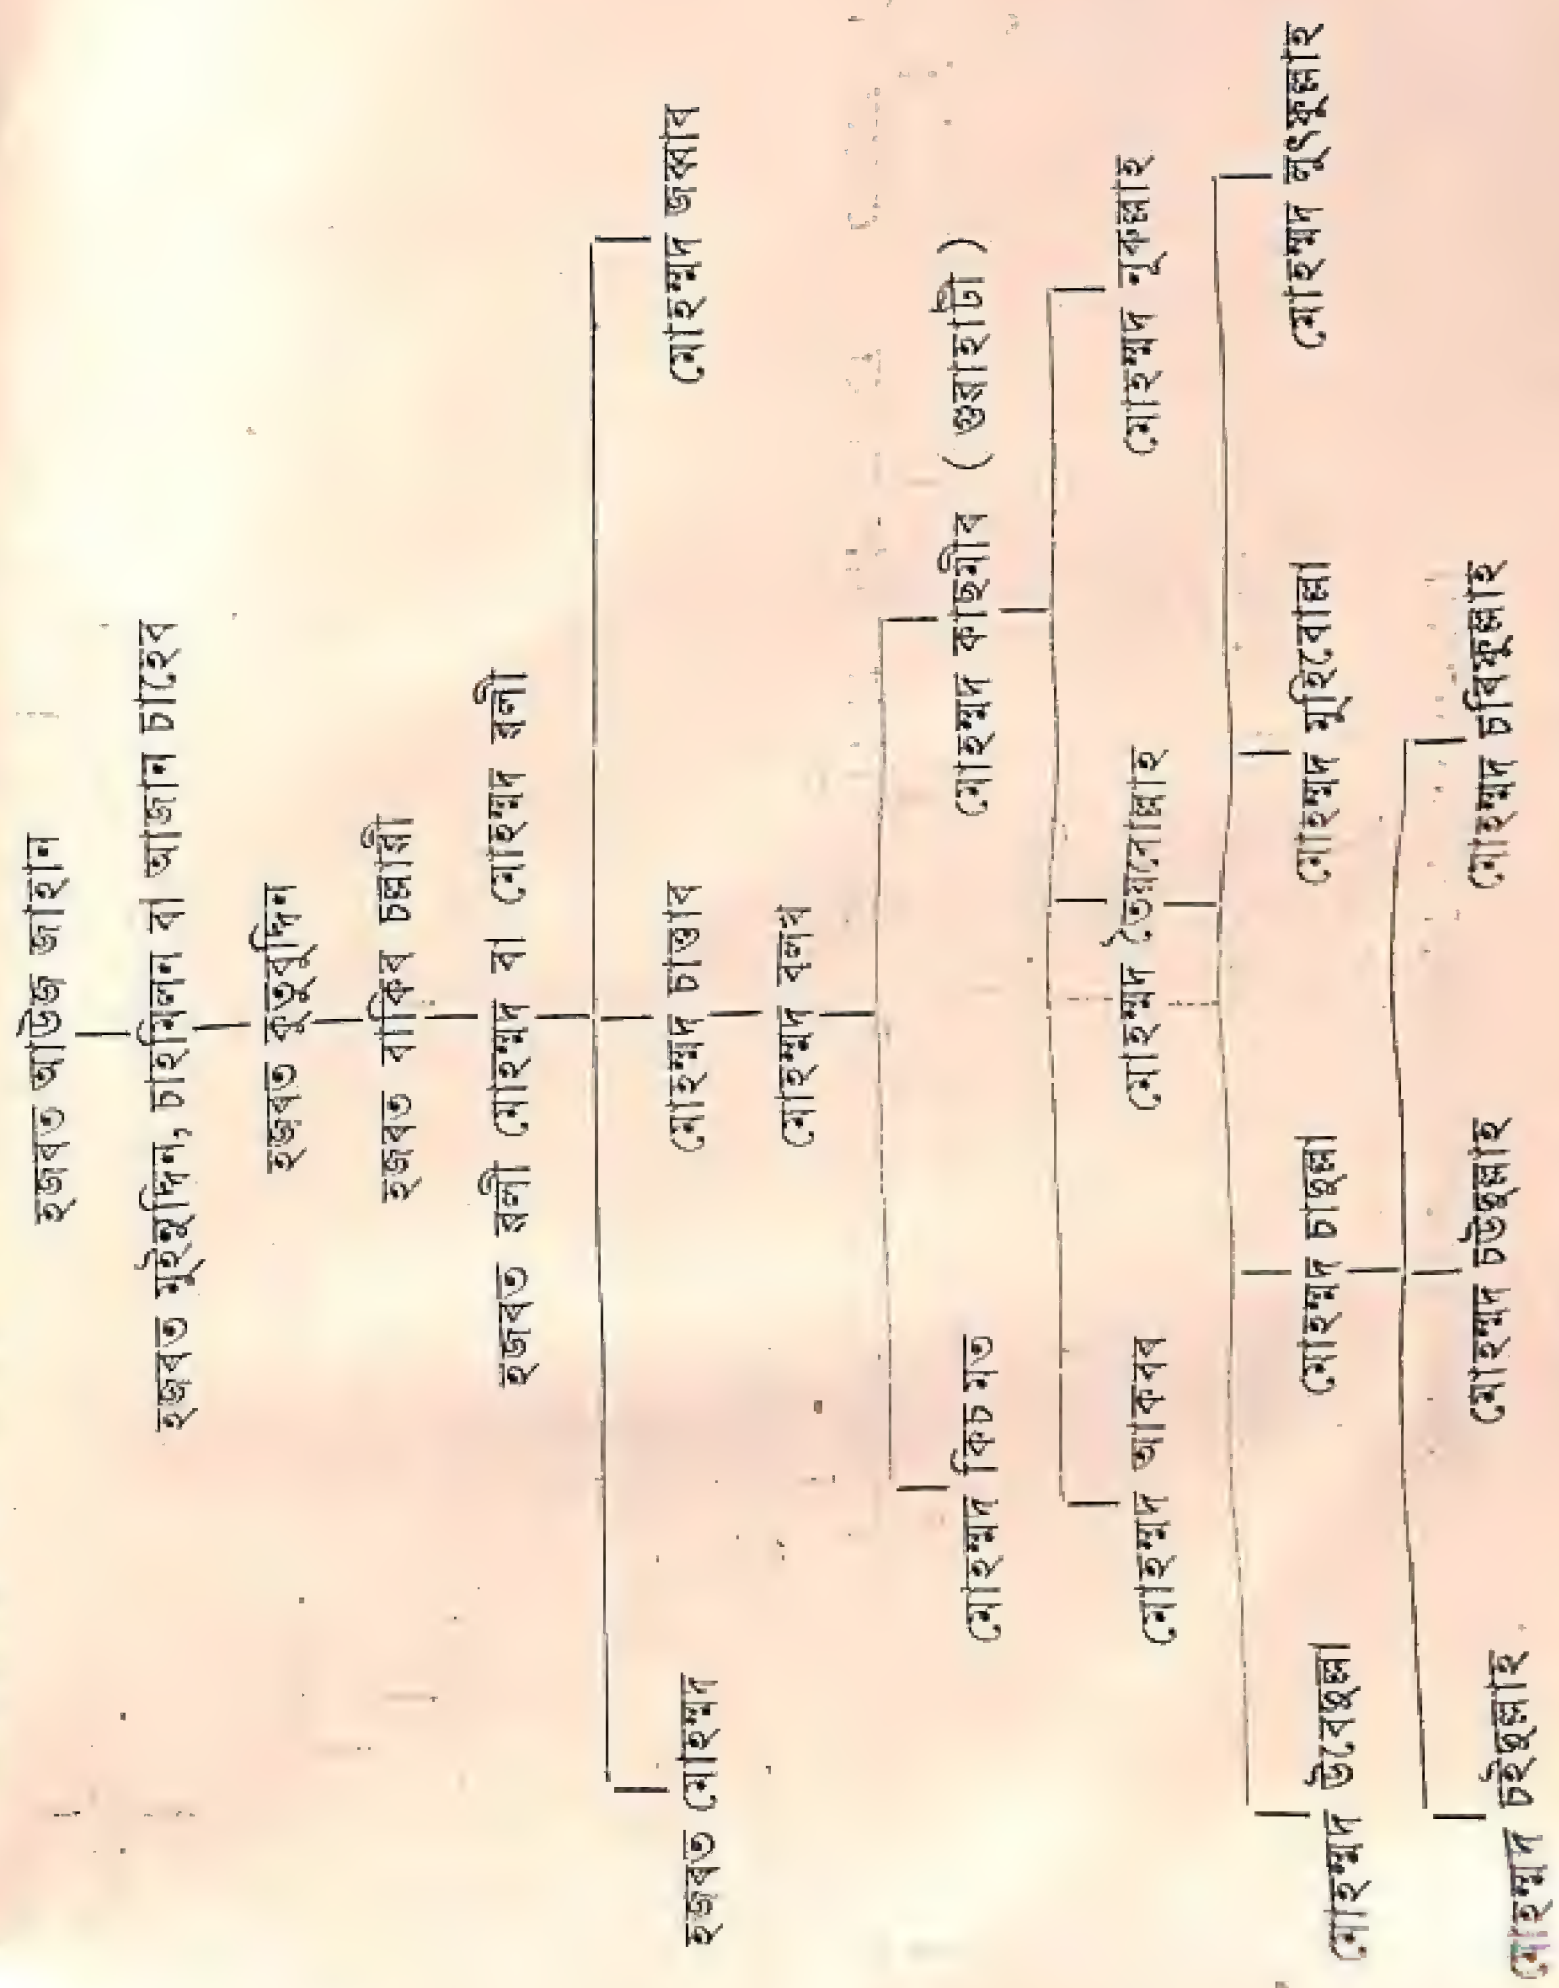 হজৰত আউজ জাহান
হজৰত মুইনুদ্দিন, চাহমিলন বা আজান চাহেব
হজৰত কুতুবুদ্দিন
হজৰত বাকিৰ চল্লাৰী
হজৰত ৱলী মোহম্মদ বা মোহম্মদ ৱলী
হজৰত মোহম্মদ
মোহম্মদ চাত্তাৰ
মোহম্মদ জব্বাৰ
মোহম্মদ বদৰ
মোহম্মদ কিচমত
মোহম্মদ কাছমীৰ ( গুৱাহাটী )
মোহম্মদ আকবৰ
মোহম্মদ তৈয়বোল্লাহ
মোহম্মদ নুৰুল্লাহ
মোহম্মদ উবেদুল্লা
মোহম্মদ চাদুল্লা
মোহম্মদ মুহিবোল্লা
মোহম্মদ লুৎফুল্লাহ
মোহম্মদ চইদুল্লাহ
মোহম্মদ চউদুল্লাহ
মোহম্মদ চৰিফুল্লাহ